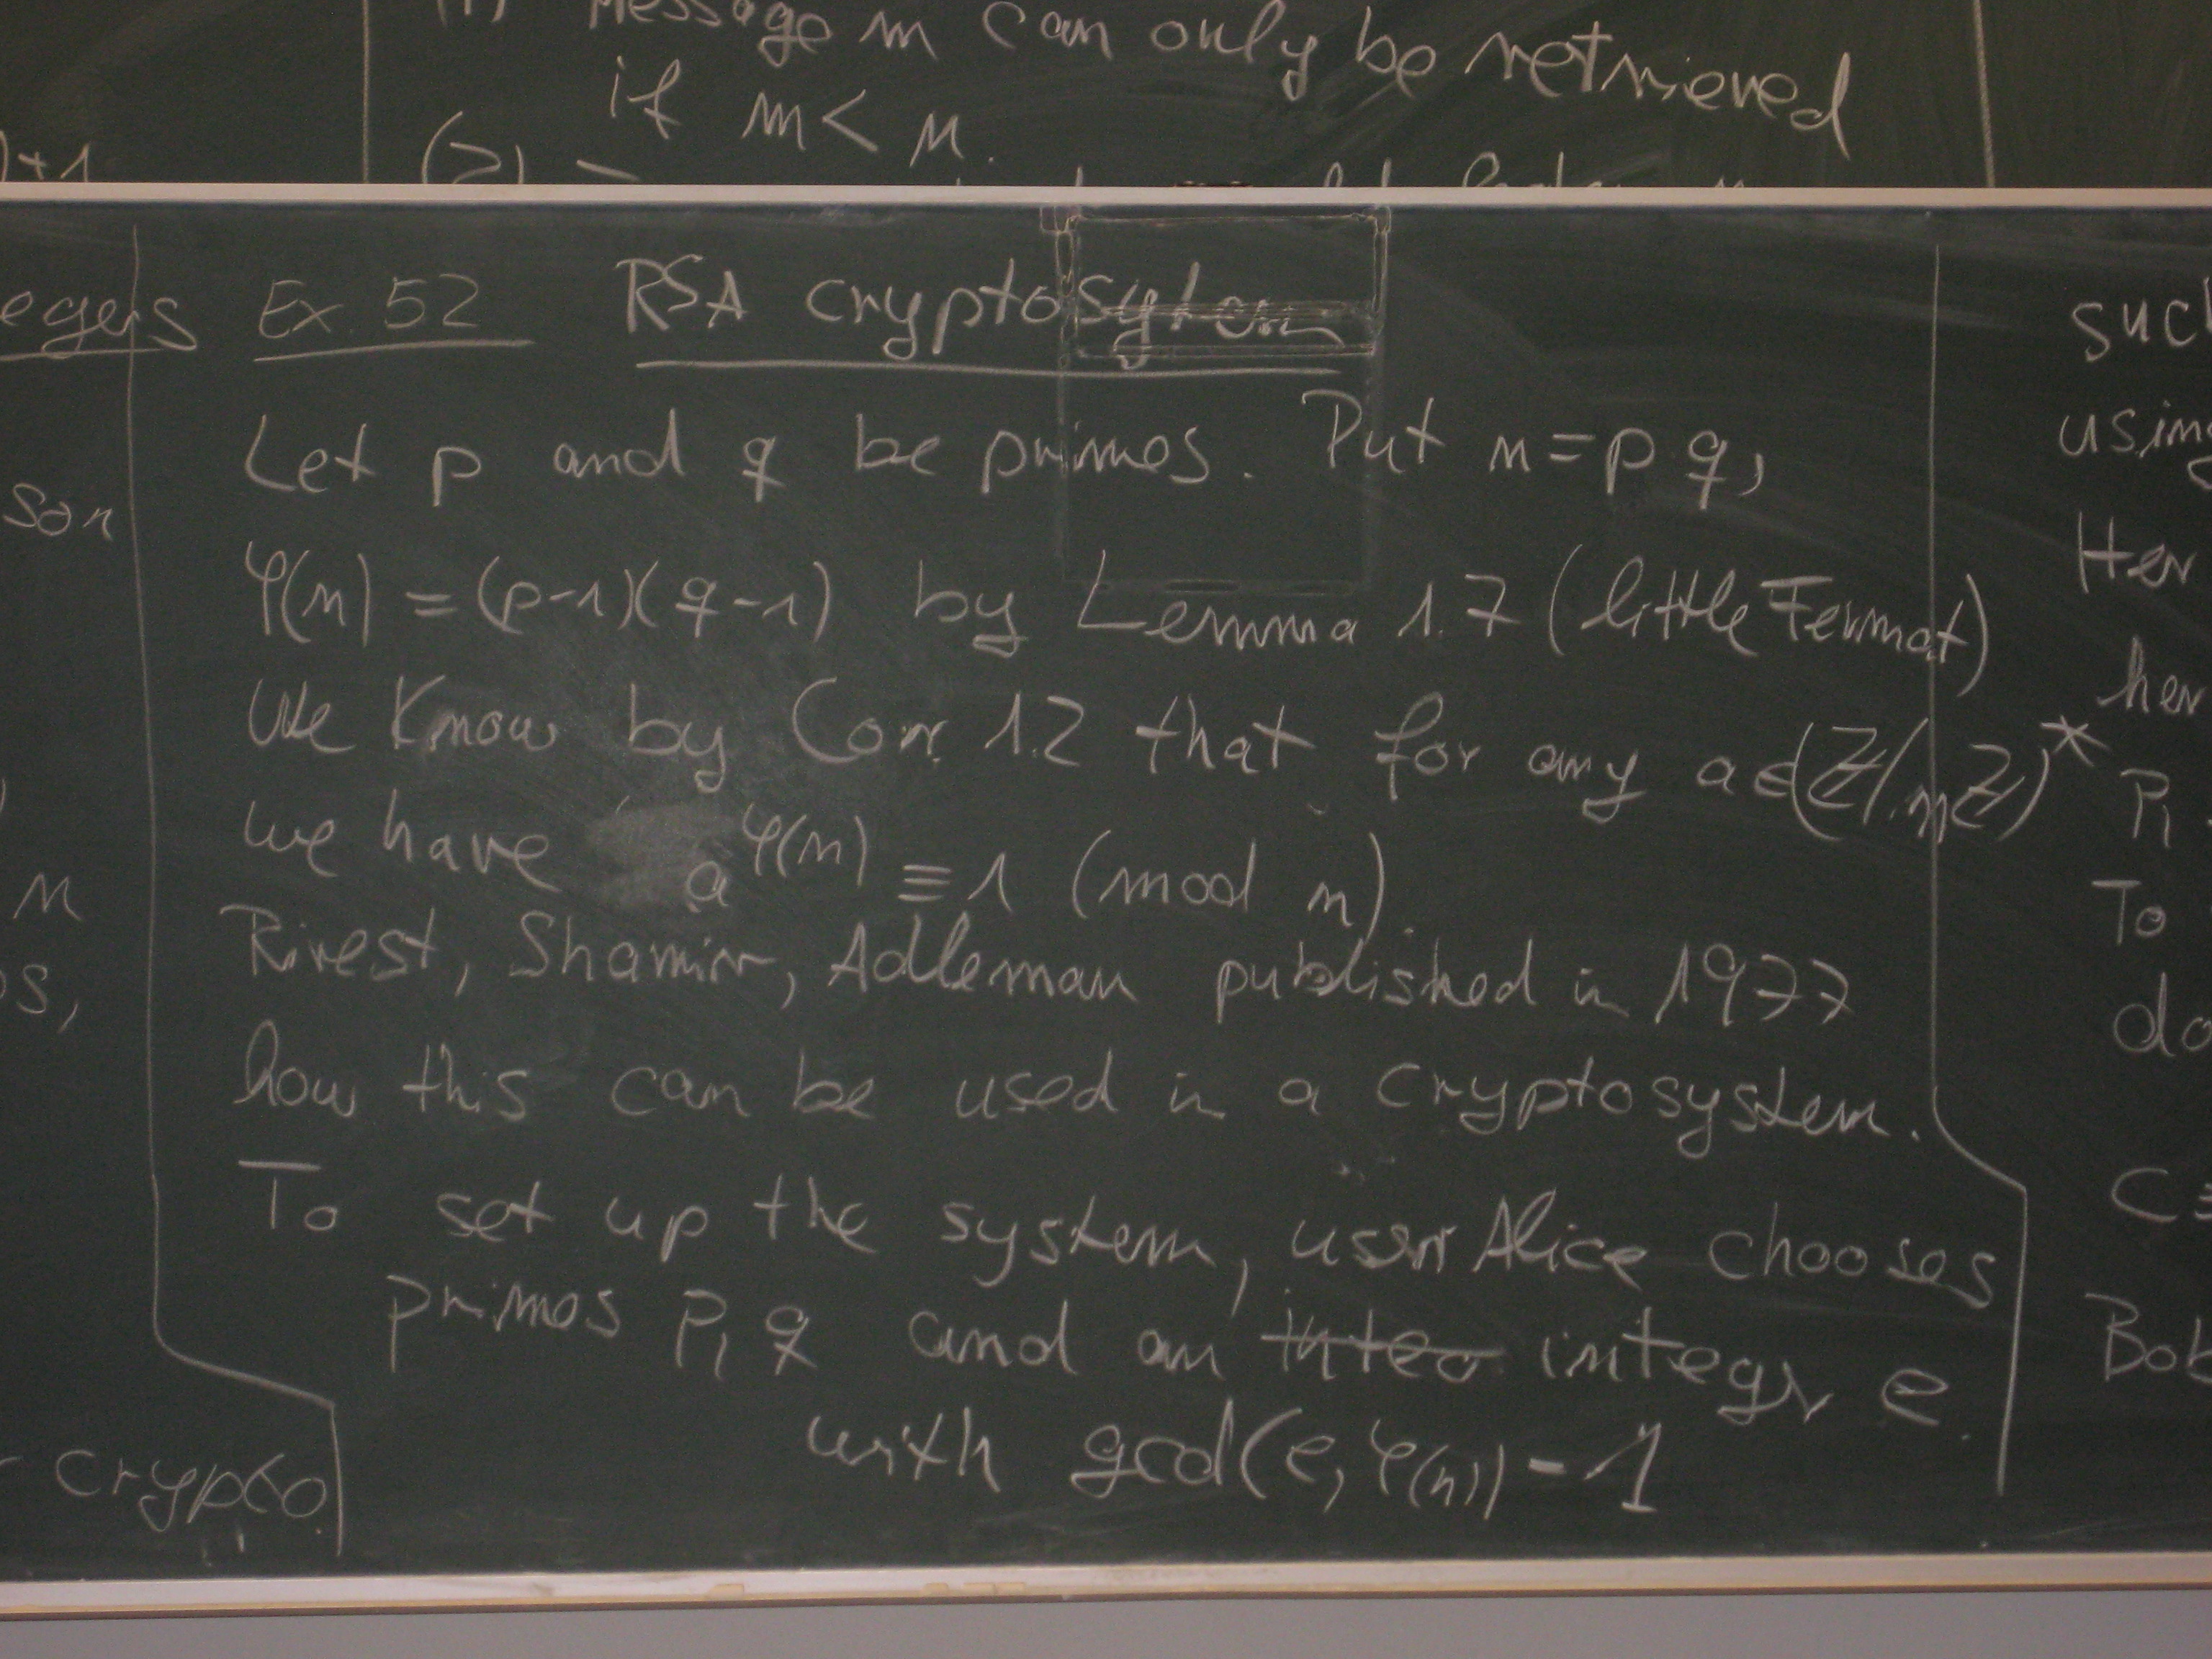 (1) Message m can only be retrieved
if m < n.
)+1
(2)
egers
son
n
os,
crypto
Ex. 52 RSA cryptosytem
Let p and q be primes. Put n = p q,
φ(n) = (p-1)(q-1) by Lemma 1.7 (little Fermat)
We know by Corr. 1.2 that for any a ∈ (ℤ/nℤ)*
we have a^φ(n) ≡ 1 (mod n)
Rivest, Shamir, Adleman published in 1977
how this can be used in a cryptosystem.
To set up the system, user Alice chooses
primes p, q and an ~~inteo~~ integr e
with gcd(e, φ(n)) = 1
suc
using
Her
her
P,
To
do
C ≡
Bob